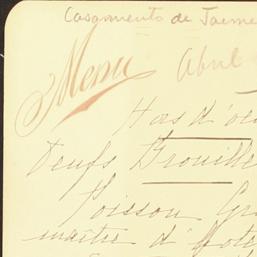 Casamento de Jaime
Menu
Abril
Hors d'oeu
Oeufs Brouillé
Poisson Gr
maître d'hote